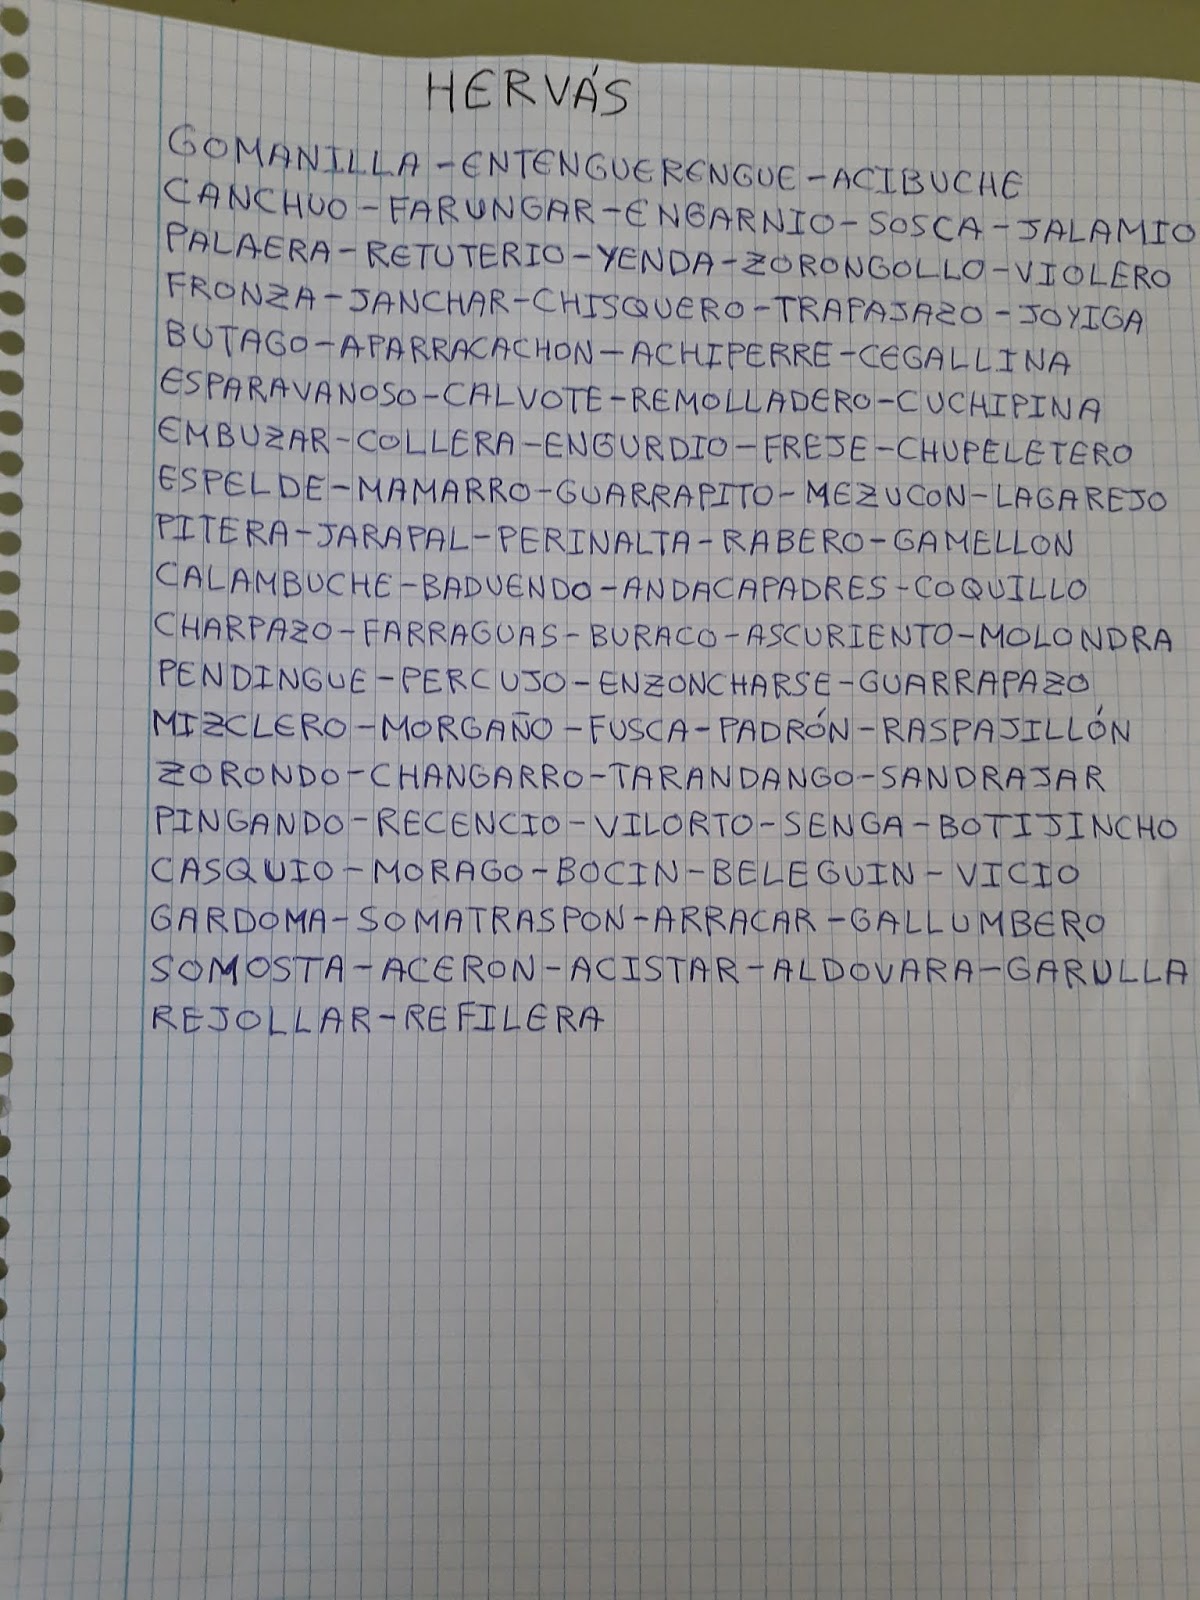 HERVÁS
GOMANILLA-ENTENGUERENGUE-ACIBUCHE
CANCHUO-FARUNGAR-ENGARNIO-SOSCA-JALAMIO
PALAERA-RETUTERIO-YENDA-ZORONGOLLO-VIOLERO
FRONZA-JANCHAR-CHISQUERO-TRAPAJAZO-JOYIGA
BUTAGO-APARRACACHON-ACHIPERRE-CEGALLINA
ESPARAVANOSO-CALVOTE-REMOLLADERO-CUCHIPINA
EMBUZAR-COLLERA-ENGURDIO-FREJE-CHUPELETERO
ESPELDE-MAMARRO-GUARRAPITO-MEZUCON-LAGAREJO
PITERA-JARAPAL-PERINALTA-RABERO-GAMELLON
CALAMBUCHE-BADUENDO-ANDACAPADRES-COQUILLO
CHARPAZO-FARRAGUAS-BURACO-ASCURIENTO-MOLONDRA
PENDINGUE-PERCUJO-ENZONCHARSE-GUARRAPAZO
MIZCLERO-MORGAÑO-FUSCA-PADRÓN-RASPAJILLÓN
ZORONDO-CHANGARRO-TARANDANGO-SANDRAJAR
PINGANDO-RECENCIO-VILORTO-SENGA-BOTIJINCHO
CASQUIO-MORAGO-BOCIN-BELEGUIN-VICIO
GARDOMA-SOMATRASPON-ARRACAR-GALLUMBERO
SOMOSTA-ACERON-ACISTAR-ALDOVARA-GARULLA
REJOLLAR-REFILERA